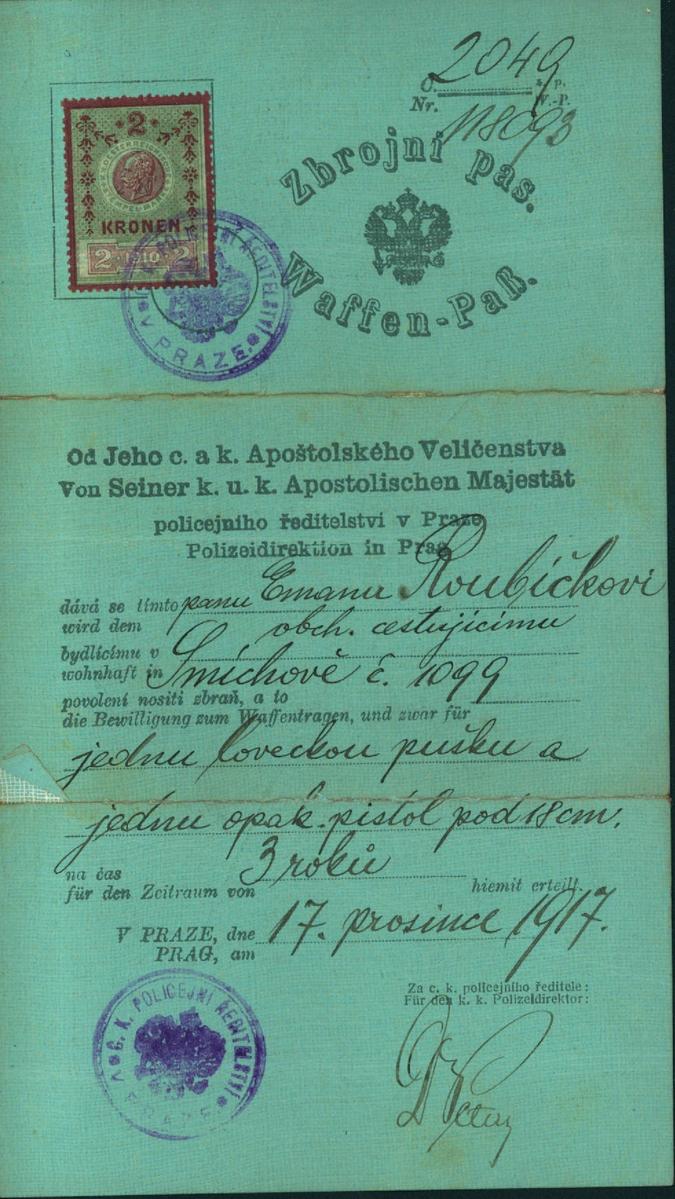 2049
Č. z. p.
Nr. W.-P.
118093
2
KRONEN
2 1910 2
C. K. POLICEJNÍ ŘEDITELSTVÍ
V PRAZE
Zbrojní pas.
Waffen-Paß.
Od Jeho c. a k. Apoštolského Veličenstva
Von Seiner k. u. k. Apostolischen Majestät
policejního ředitelství v Praze
Polizeidirektion in Prag
dává se tímto panu Emanu Roubíčkovi
wird dem obch. cestujícímu
bydlícímu v
wohnhaft in Smíchově č. 1099
povolení nositi zbraň, a to
die Bewilligung zum Waffentragen, und zwar für
jednu loveckou pušku a
jednu opak. pistol pod 18 cm.
na čas 3 roků
für den Zeitraum von hiemit erteilt.
V PRAZE, dne 17. prosince 1917.
PRAG, am
Za c. k. policejního ředitele:
Für den k. k. Polizeidirektor:
C. K. POLICEJNÍ ŘEDITELSTVÍ
V PRAZE